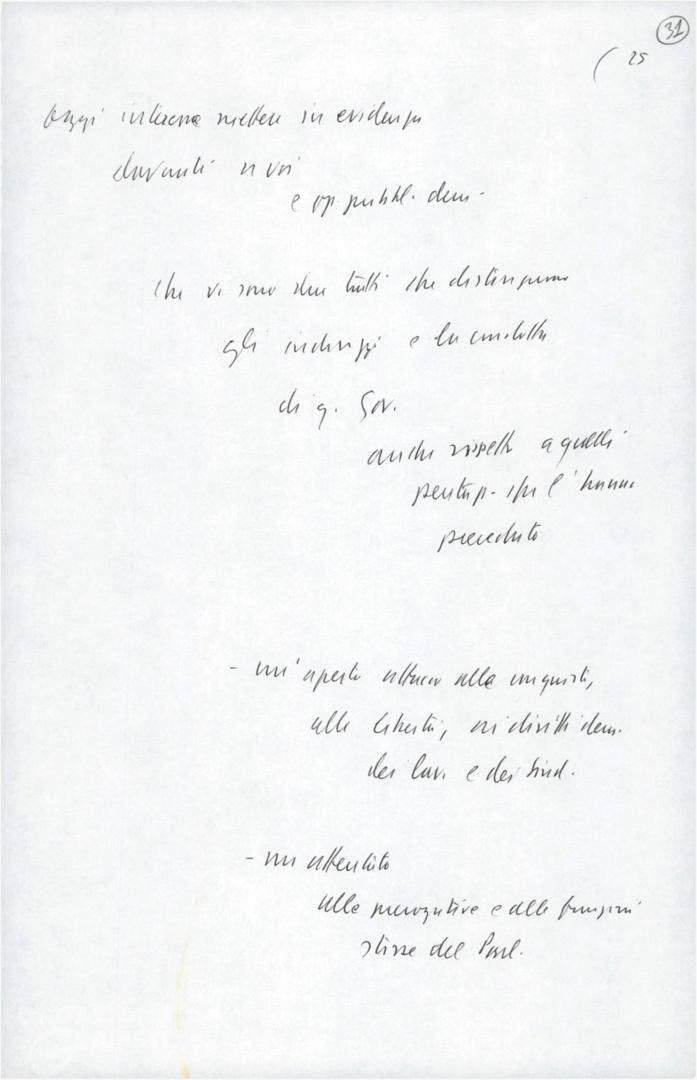 31
( 25
Oggi interessa mettere in evidenza
davanti a voi
e op. pubbl. dem.
che vi sono due tratti che distinguono
gli indirizzi e la condotta
di q. Gov.
anche rispetto a quelli
pentap. che l'hanno
preceduto
- un'aperto attacco alle conquiste,
alle libertà, ai diritti dem.
dei lav. e dei sind.
- un attentato
alle prerogative e alle funzioni
stesse del Parl.